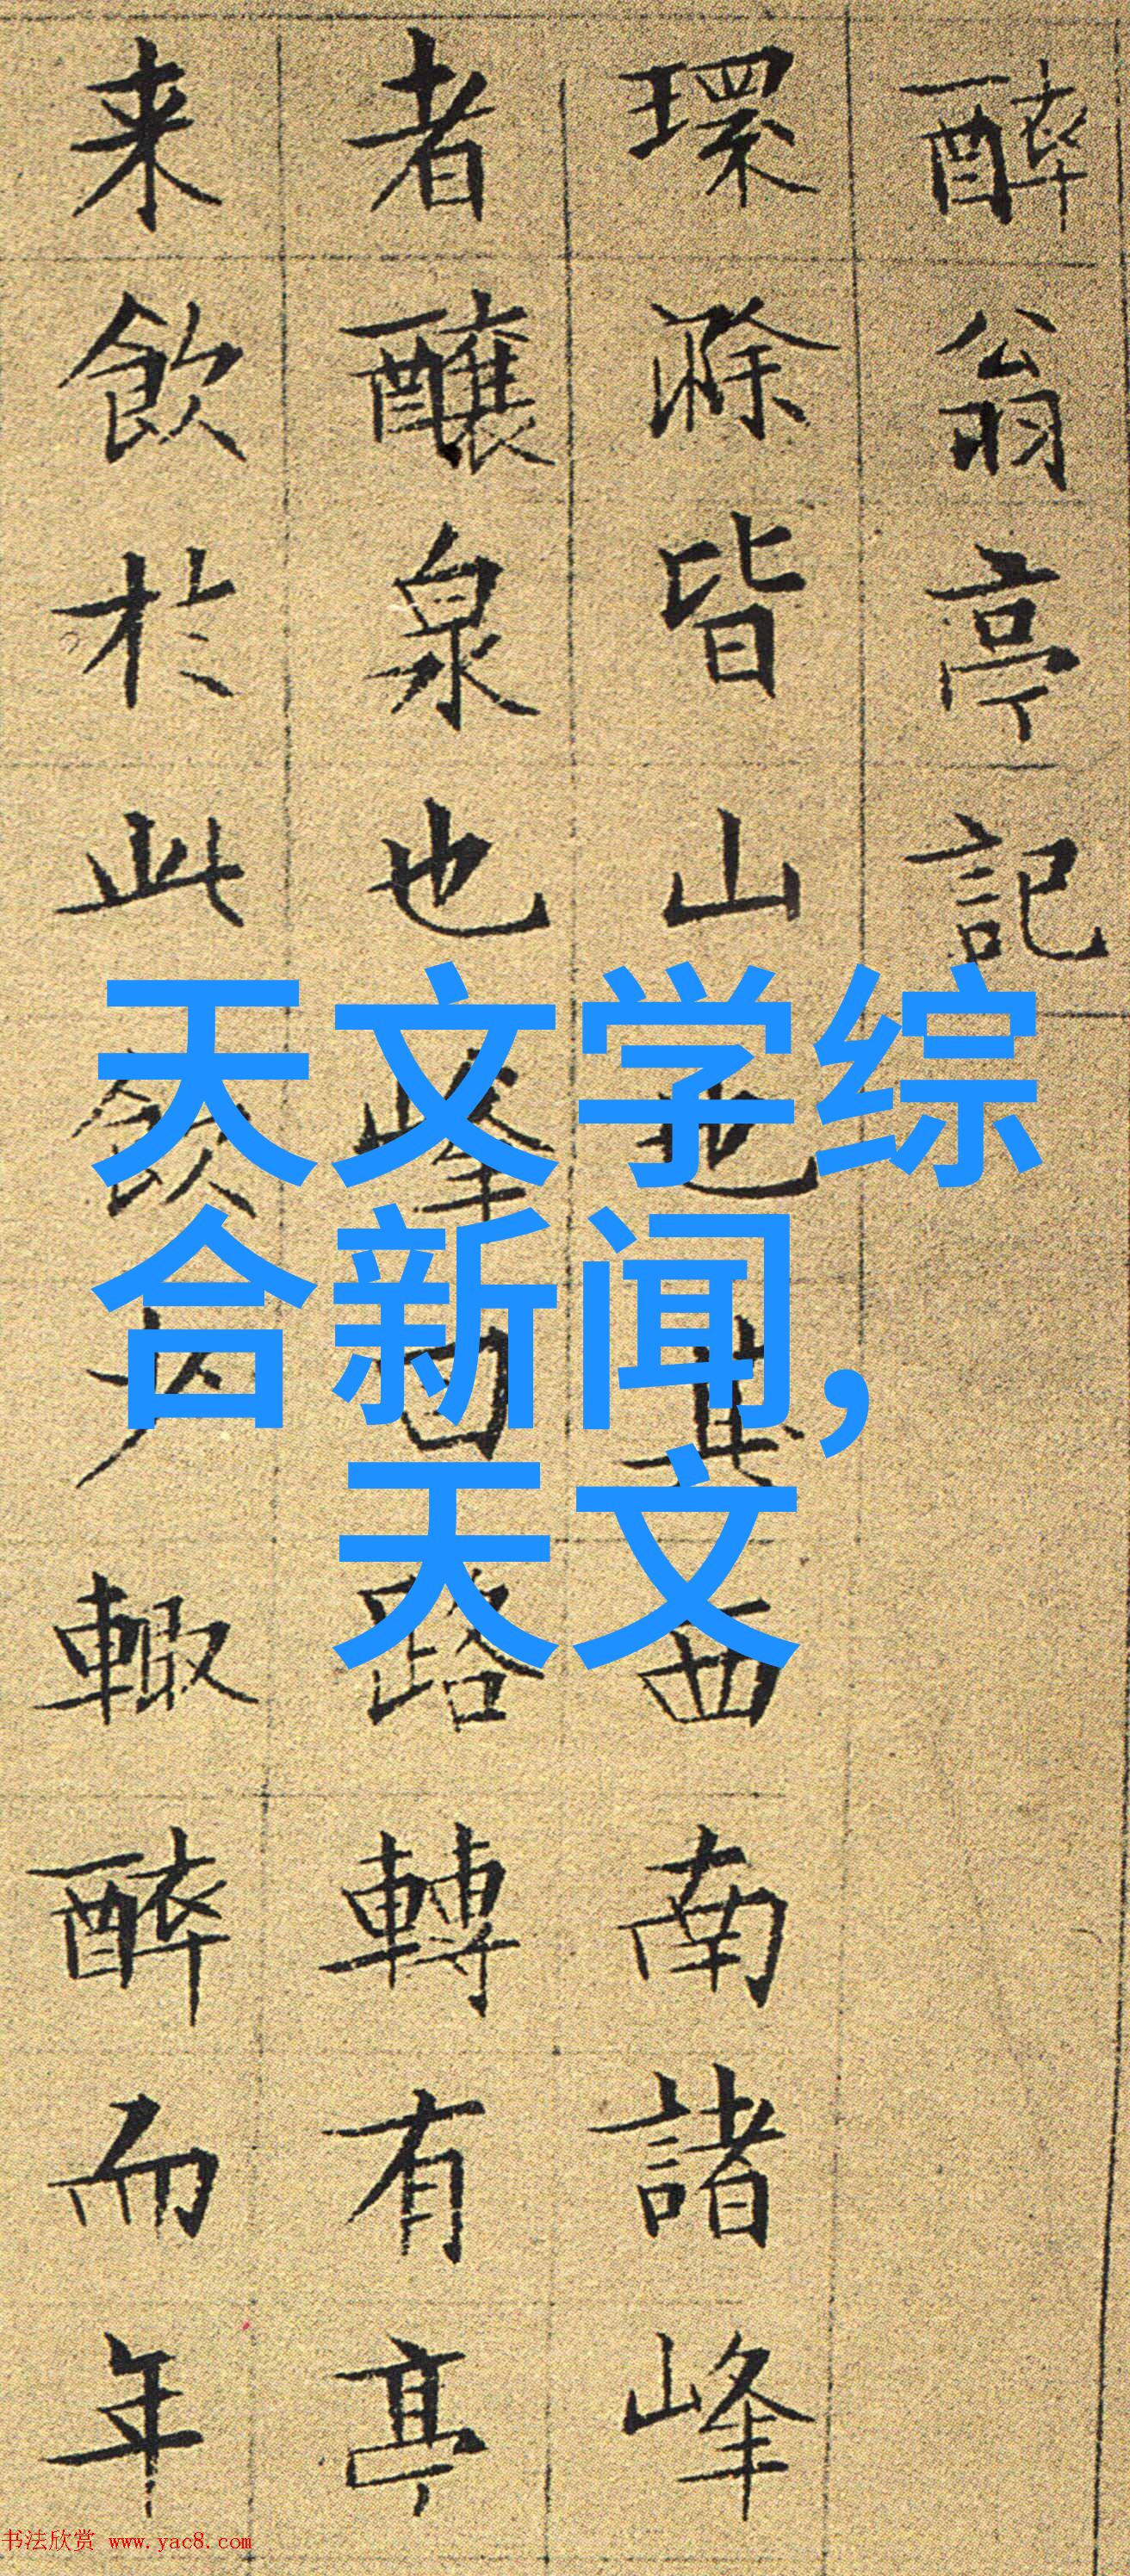 醉翁亭記
環滁皆山也其西南諸峰
者釀泉也峰回路轉有亭
来飲於此飲少輒醉而年
天文学综
合新闻,
天文
书法欣赏 www.yac8.com